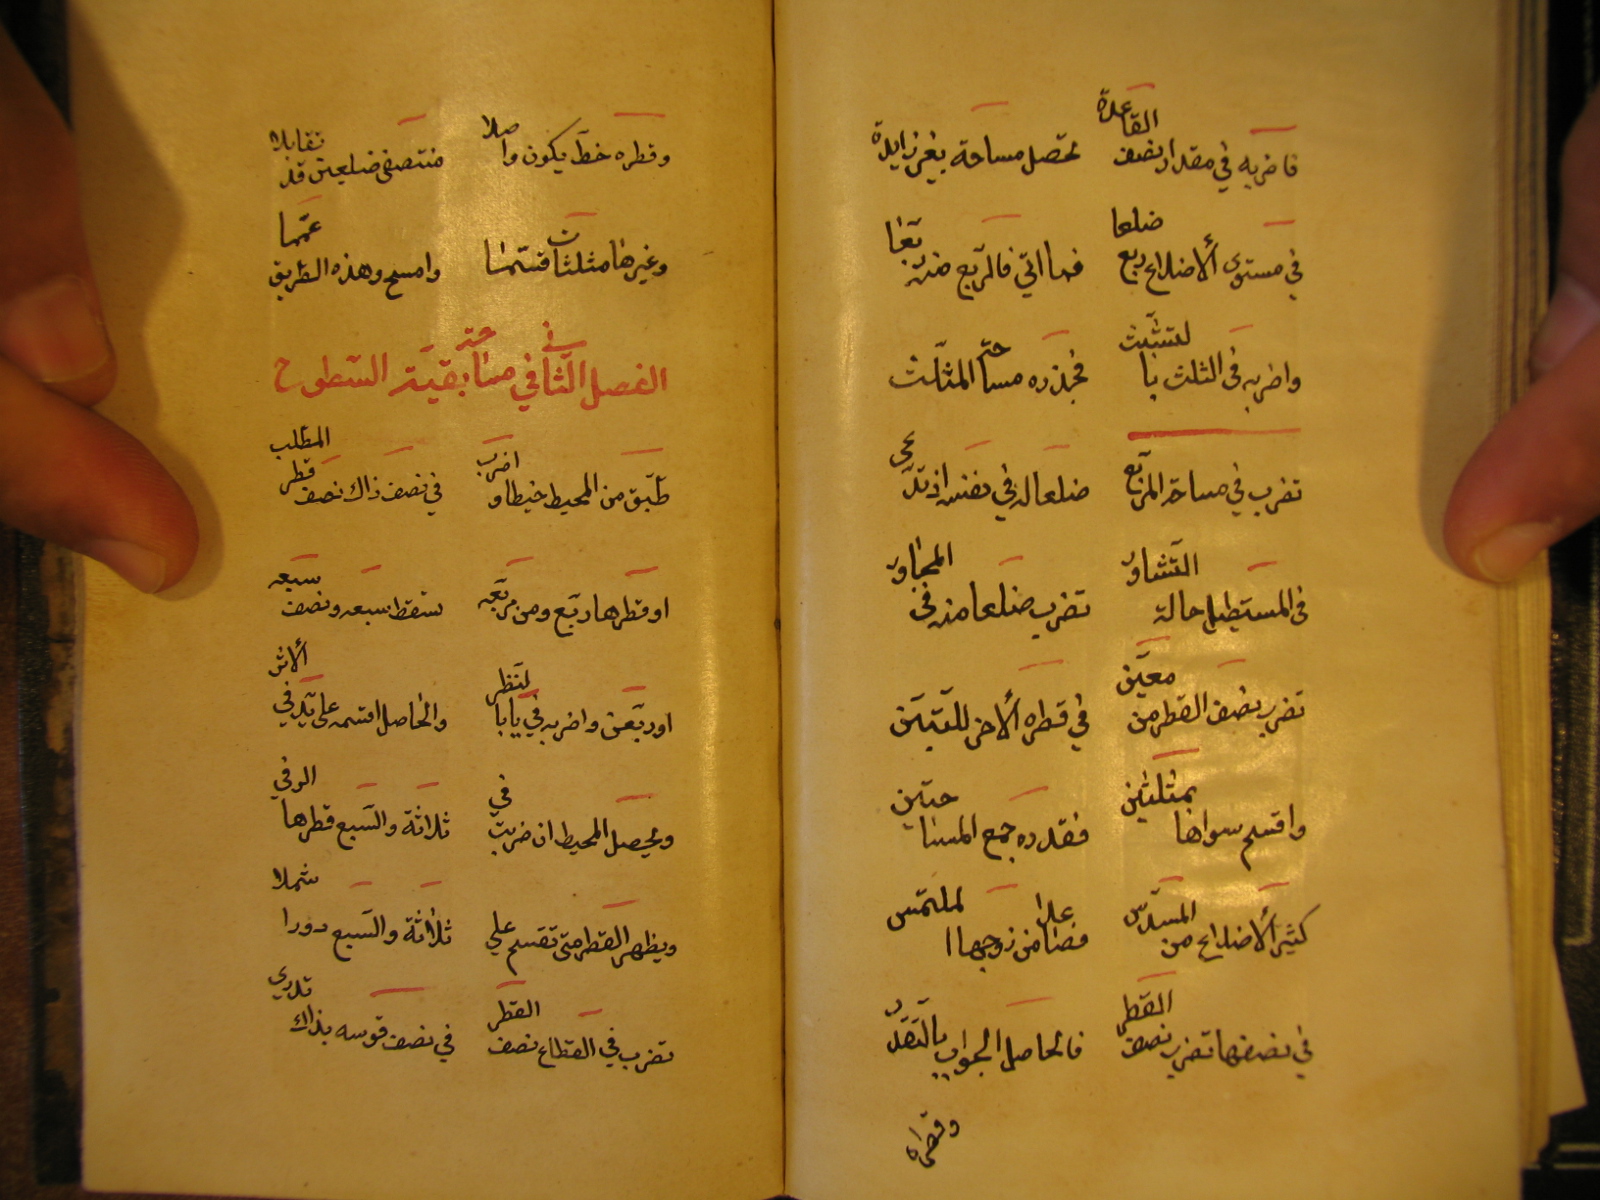 فاضربه في مقدار نصف القاعدة تحصل مساحة بغير زايدة
في مستوى الأضلاع ربع ضلعا فما اتى فالربع منه تبعا
واضربه في الثلث با لتثبيث فجذره مساحة المثلث
تضرب في مساحة المربع ضلعا له في نفسه اذ تدعى
في المستطيل حالة التشاور تضرب ضلعا منه في المجاور
تضرب نصف القطر من معين في قطره الاخر للتبين
واقسم سواها بمثلثين فقد ره جمع المساحتين
كثير الأضلاع من المسدس فصاعدا من زوجها الملتمس
في نصفها تضرب نصف القطر فالحاصل الجواب بالتقدر
وقطره
وقطره خط يكون واصلا منتصفي ضلعين قد تقابلا
وغيرها مثلثات قستمها وامسح وهذه الطريق عمها
الفصل الثاني في مساحة بقية السطوح
طبق من المحيط خيطا واضرب في نصف ذاك نصف قطر المطلب
او قطرها ربع ومن مربعه تسقط سبعه ونصف سبعه
اوربعن واضربه في يابا لنظر والحاصل اقسمه على يد في الأثر
ويحصل المحيط ان ضربت في ثلاثة والسبع قطرها الوفي
ويظهر القطر متى تقسم على ثلاثة والسبع دورا شملا
تضرب في القطاع نصف القطر في نصف قوسه بذاك تدري